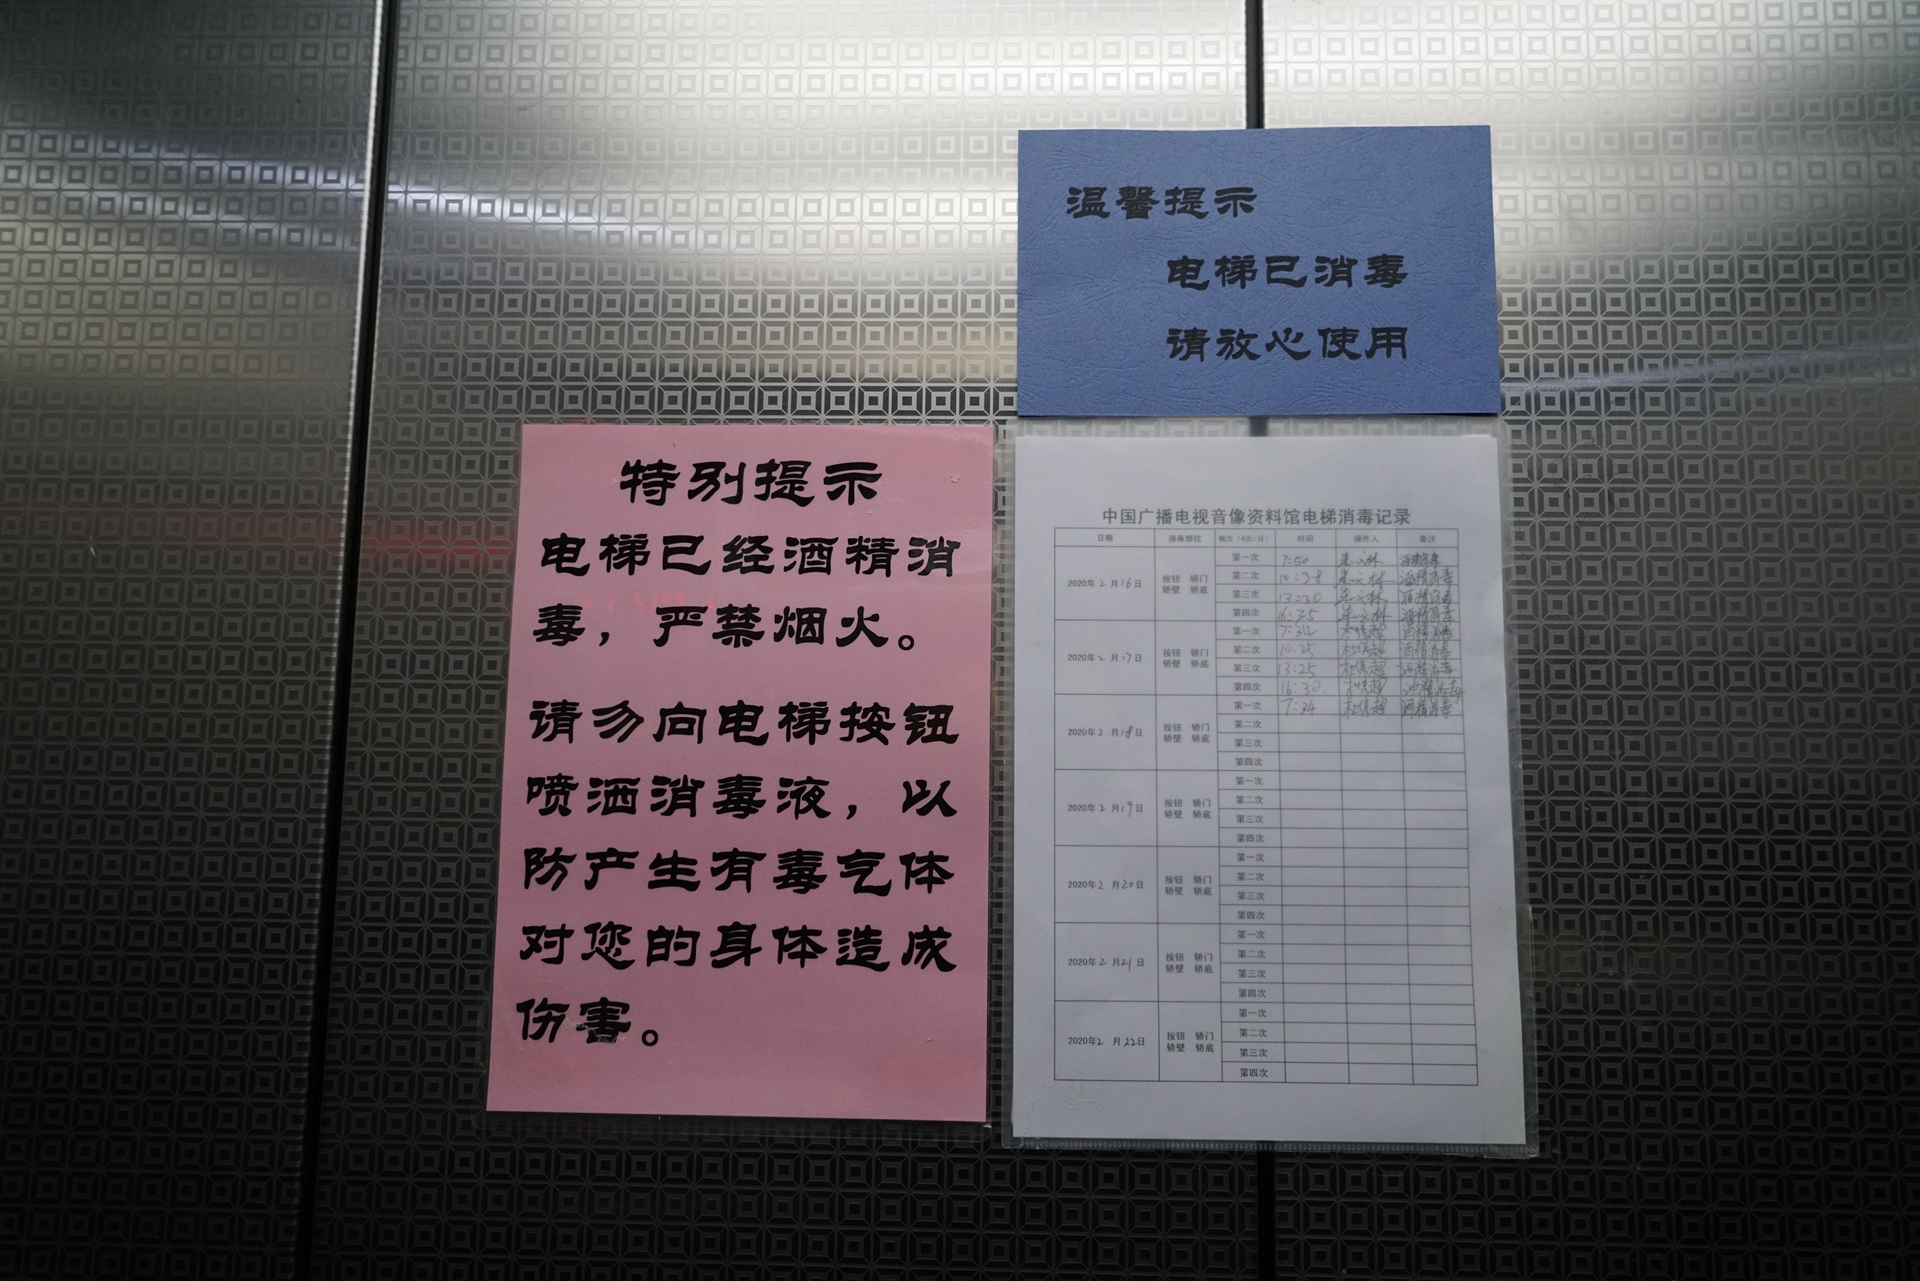 温馨提示
电梯已消毒
请放心使用
特别提示
电梯已经酒精消
毒，严禁烟火。
请勿向电梯按钮
喷洒消毒液，以
防产生有毒气体
对您的身体造成
伤害。
中国广播电视音像资料馆电梯消毒记录
日期 消毒部位 频次（4次/日） 时间 操作人 备注
2020年2月16日 按钮 轿门 轿壁 轿底
第一次 7:50 酒精消毒
第二次 10:38 酒精消毒
第三次 13:20 酒精消毒
第四次 16:35 酒精消毒
2020年2月17日 按钮 轿门 轿壁 轿底
第一次 7:34 酒精消毒
第二次 10:25 酒精消毒
第三次 13:25 酒精消毒
第四次 16:30 酒精消毒
2020年2月18日 按钮 轿门 轿壁 轿底
第一次 7:34 酒精消毒
第二次
第三次
第四次
2020年2月19日 按钮 轿门 轿壁 轿底
第一次
第二次
第三次
第四次
2020年2月20日 按钮 轿门 轿壁 轿底
第一次
第二次
第三次
第四次
2020年2月21日 按钮 轿门 轿壁 轿底
第一次
第二次
第三次
第四次
2020年2月22日 按钮 轿门 轿壁 轿底
第一次
第二次
第三次
第四次